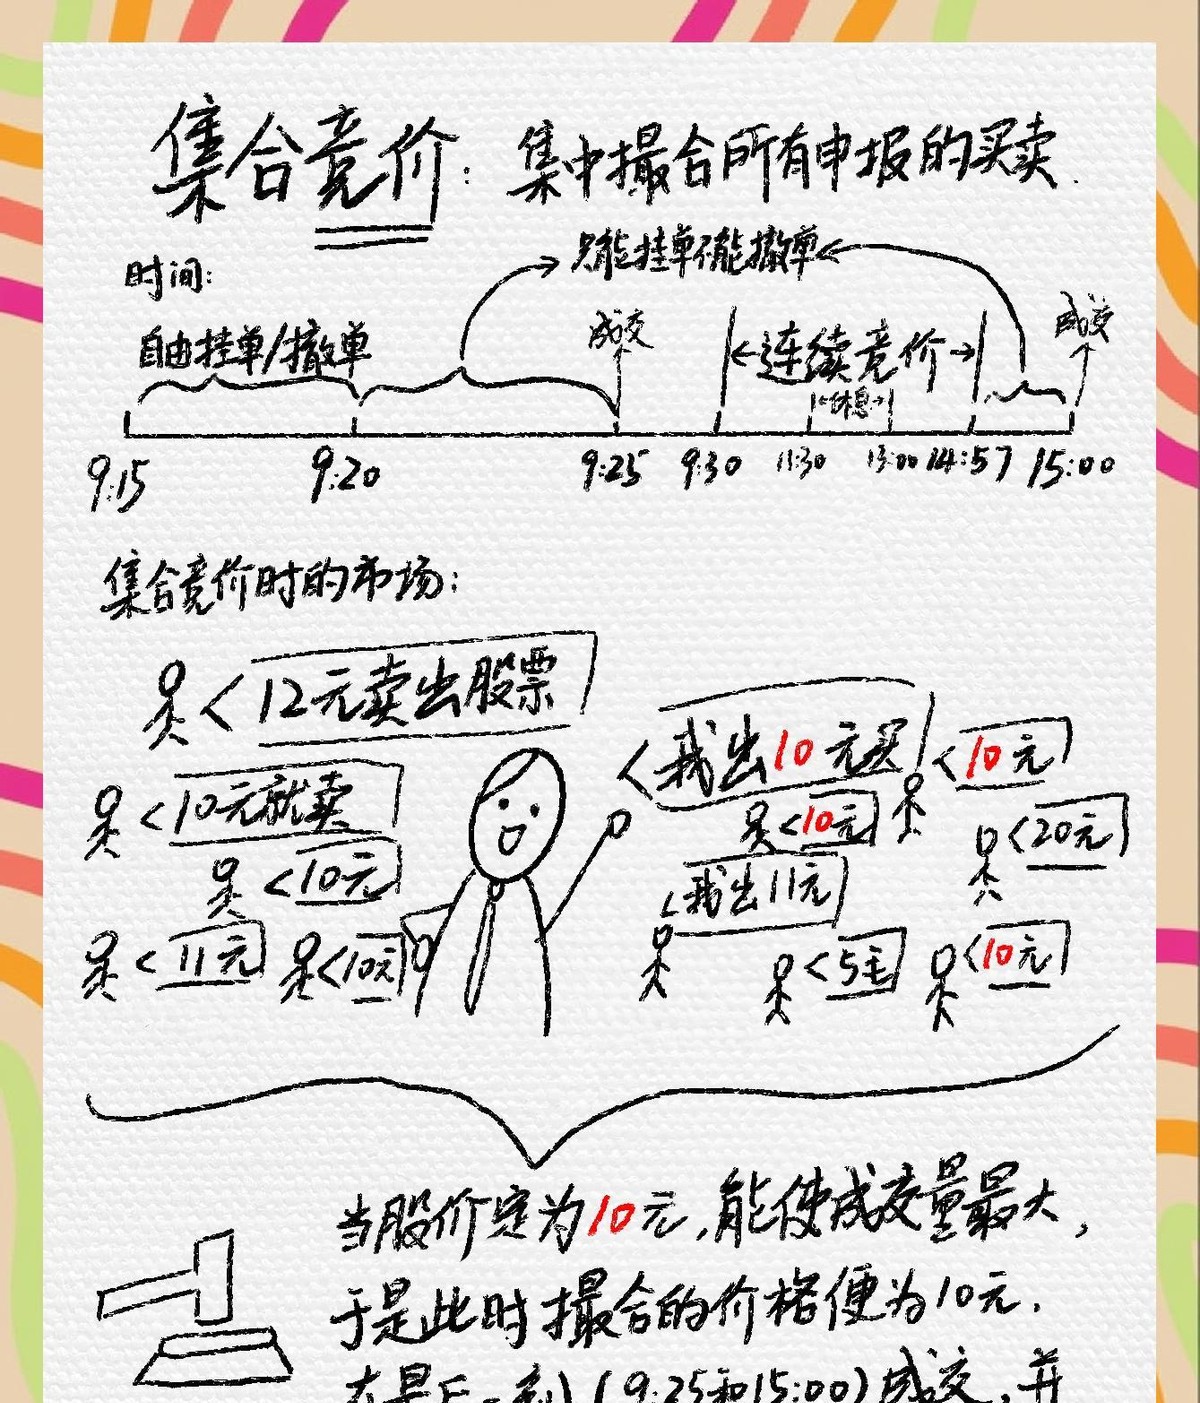 集合竞价：集中撮合所有申报的买卖.
只能挂单不能撤单
时间：
自由挂单/撤单
成交
连续竞价
成交
休息
9:15 9:20 9:25 9:30 11:30 13:00 14:57 15:00
集合竞价时的市场：
12元卖出股票
我出10元买
10元
10元就卖
10元
20元
10元
我出11元
11元
10元
5毛
10元
当股价定为10元,能使成交量最大,
于是此时撮合的价格便为10元.
(9:25和15:00)成交,并